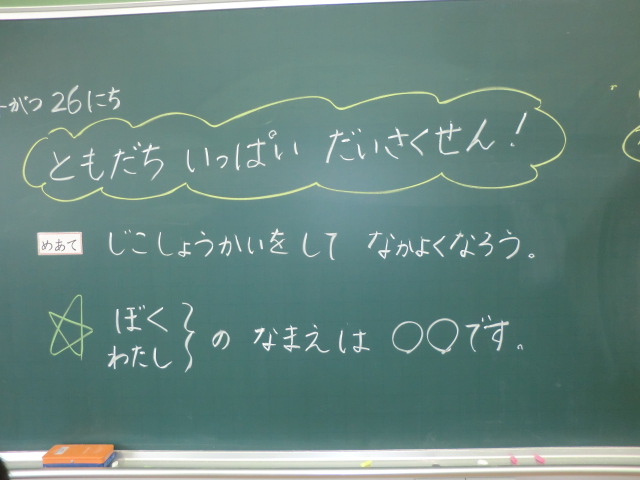 がつ26にち
ともだち いっぱい だいさくせん!
めあて じこしょうかいをして なかよくなろう。
☆ ぼく
わたし } の なまえは ○○です。